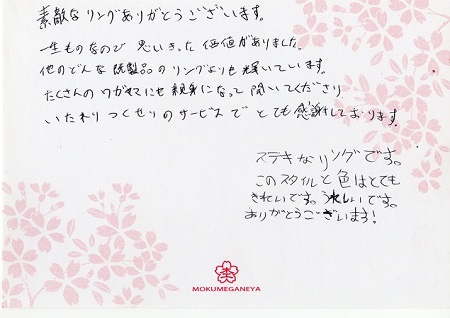 素敵なリングありがとうございます。
一生ものなので思いきった価値がありました。
他のどんな既製品のリングよりも輝いています。
たくさんのワガママにも親身になって聞いてくださり
いたれりつくせりのサービスでとても感謝しております。
ステキなリングです。
このスタイルと色はとても
きれいです。うれしいです。
ありがとうございます!
MOKUMEGANEYA